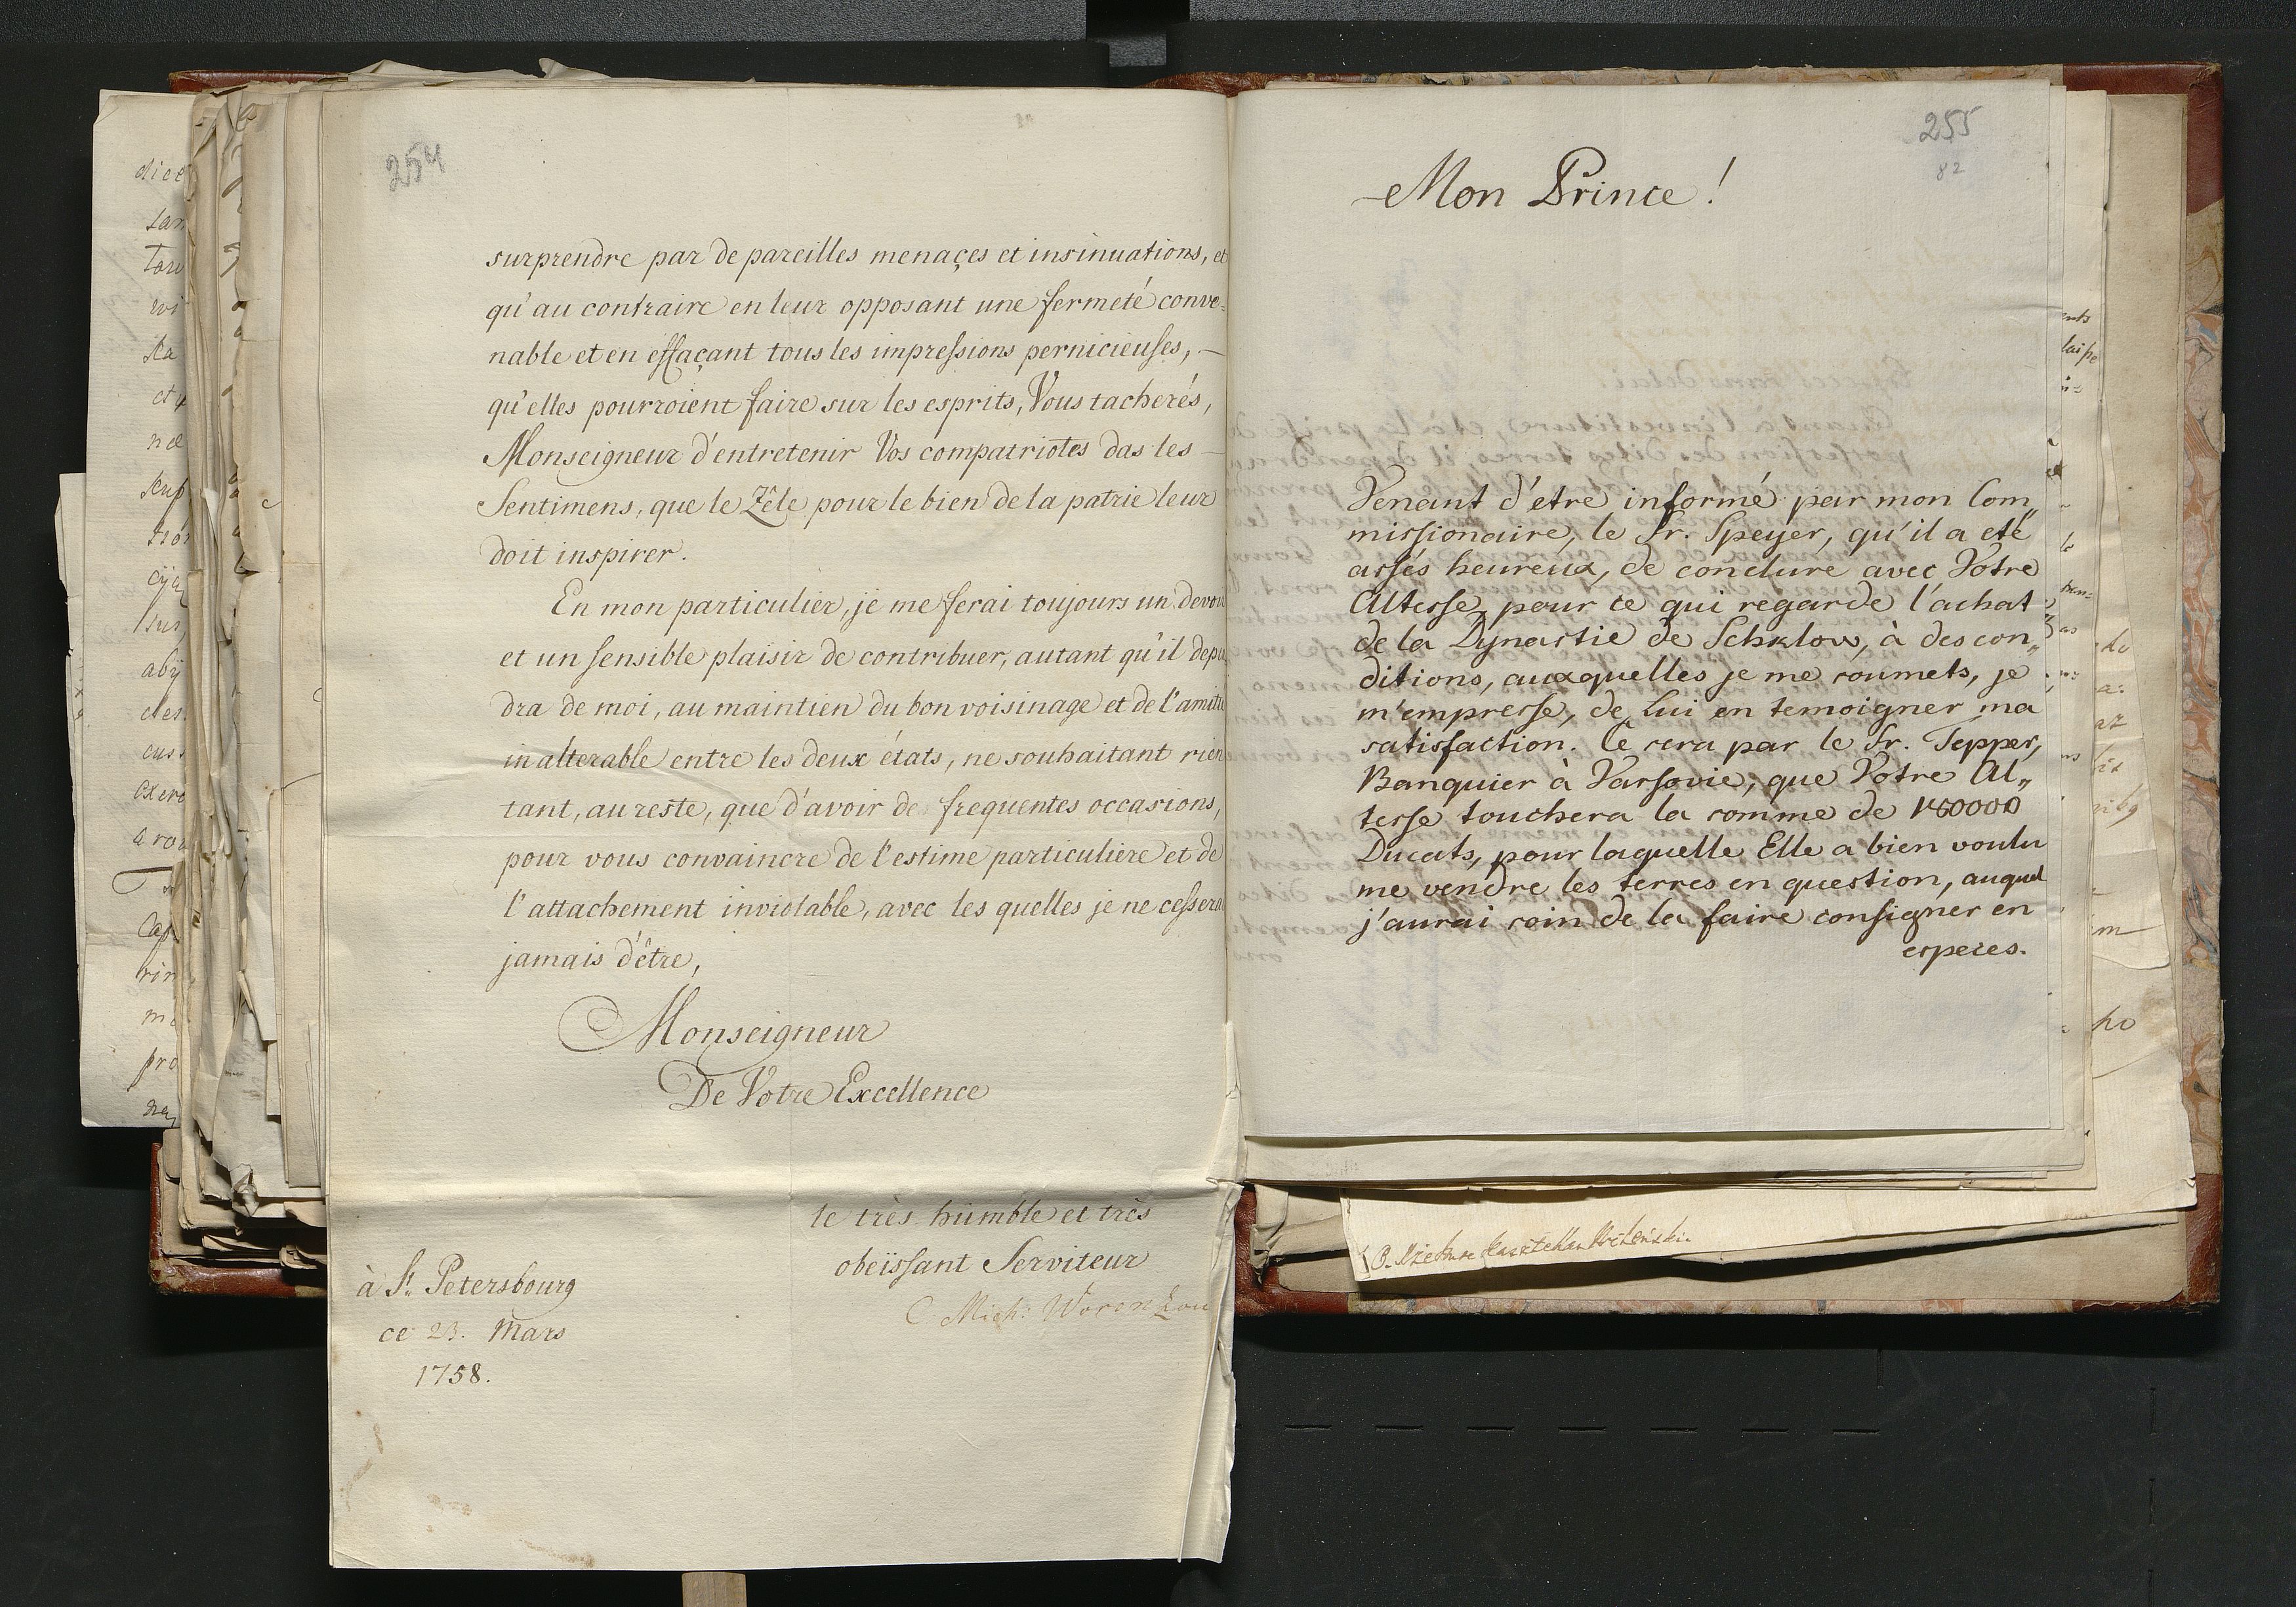 254
surprendre par de pareilles menaçes et insinuations, et
qu'au contraire en leur opposant une fermeté conve=
nable et en effaçant tous les impressions pernicieuses, —
qu'elles pourroient faire sur les esprits, Vous tacherés,
Monseigneur d'entretenir Vos compatriotes das les —
Sentimens, que le Zêle pour le bien de la patrie leur
doit inspirer.
En mon particulier, je me ferai toujours un devoi
et un sensible plaisir de contribuer, autant qu'il depe
dra de moi, au maintien du bon voisinage et de l'amitié
inalterable entre les deux états, ne souhaitant rien
tant, au reste, que d'avoir de frequentes occasions,
pour vous convaincre de l'estime particuliere et de
l'attachement inviolable, avec les quelles je ne cesserai
jamais d'être,
Monseigneur
De Votre Excellence
le très humble et très
obeissant Serviteur
C Mich: Woronzow
à St. Petersbourg
ce 23. Mars
1758.
255
82
Mon Prince!
Venant d'etre informé par mon Com„
missionaire, le Sr. Speyer, qu'il a eté
assés heureux, de conclure avec Votre
Altesse, pour ce qui regarde l'achat
de la Dynastie de Schklow, à des con„
ditions, auxquelles je me soumets, je
m'empresse, de Lui en temoigner ma
satisfaction. Ce sera par le Sr. Tepper,
Banquier à Varsovie, que Votre Al„
tesse touchera la somme de
Ducats, pour laquelle Elle a bien voulu
me vendre les terres en question, auquel
j'aurai soin de la faire consigner en
especes.